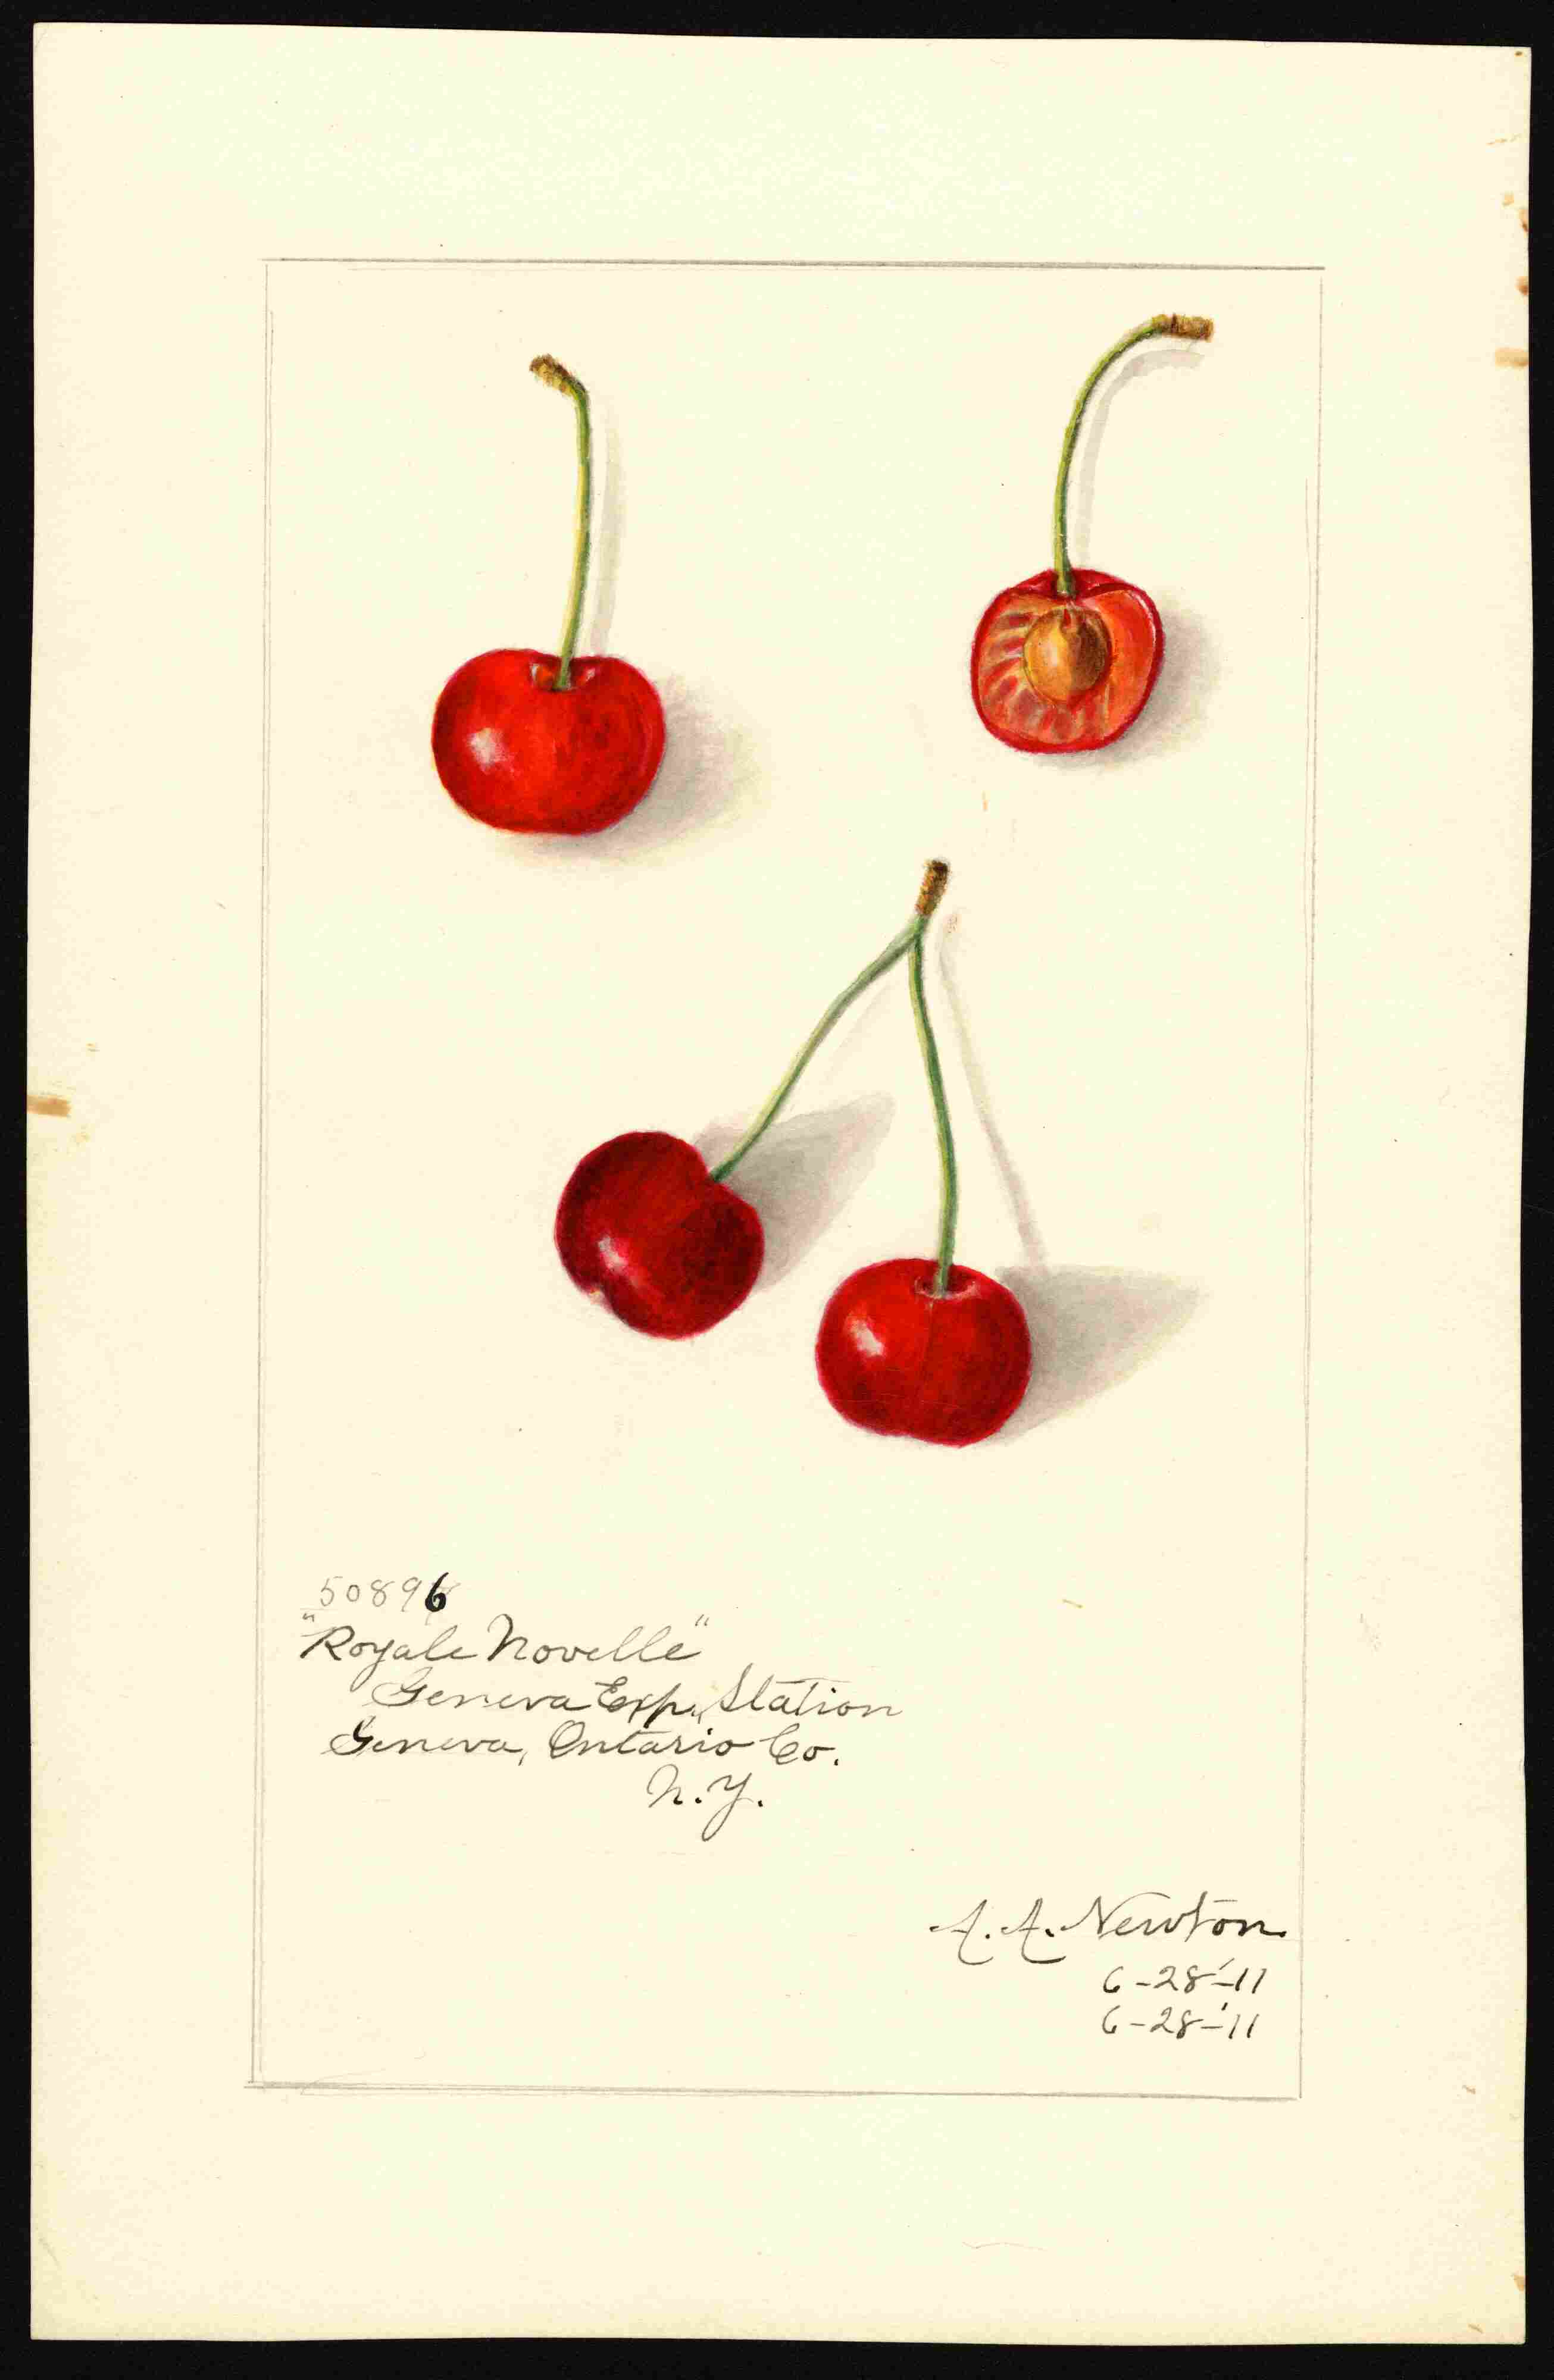 50896
"Royale Novelle"
Geneva Exp. Station
Geneva, Ontario Co.
N.Y.
A. A. Newton
6-28-'11
6-28-'11